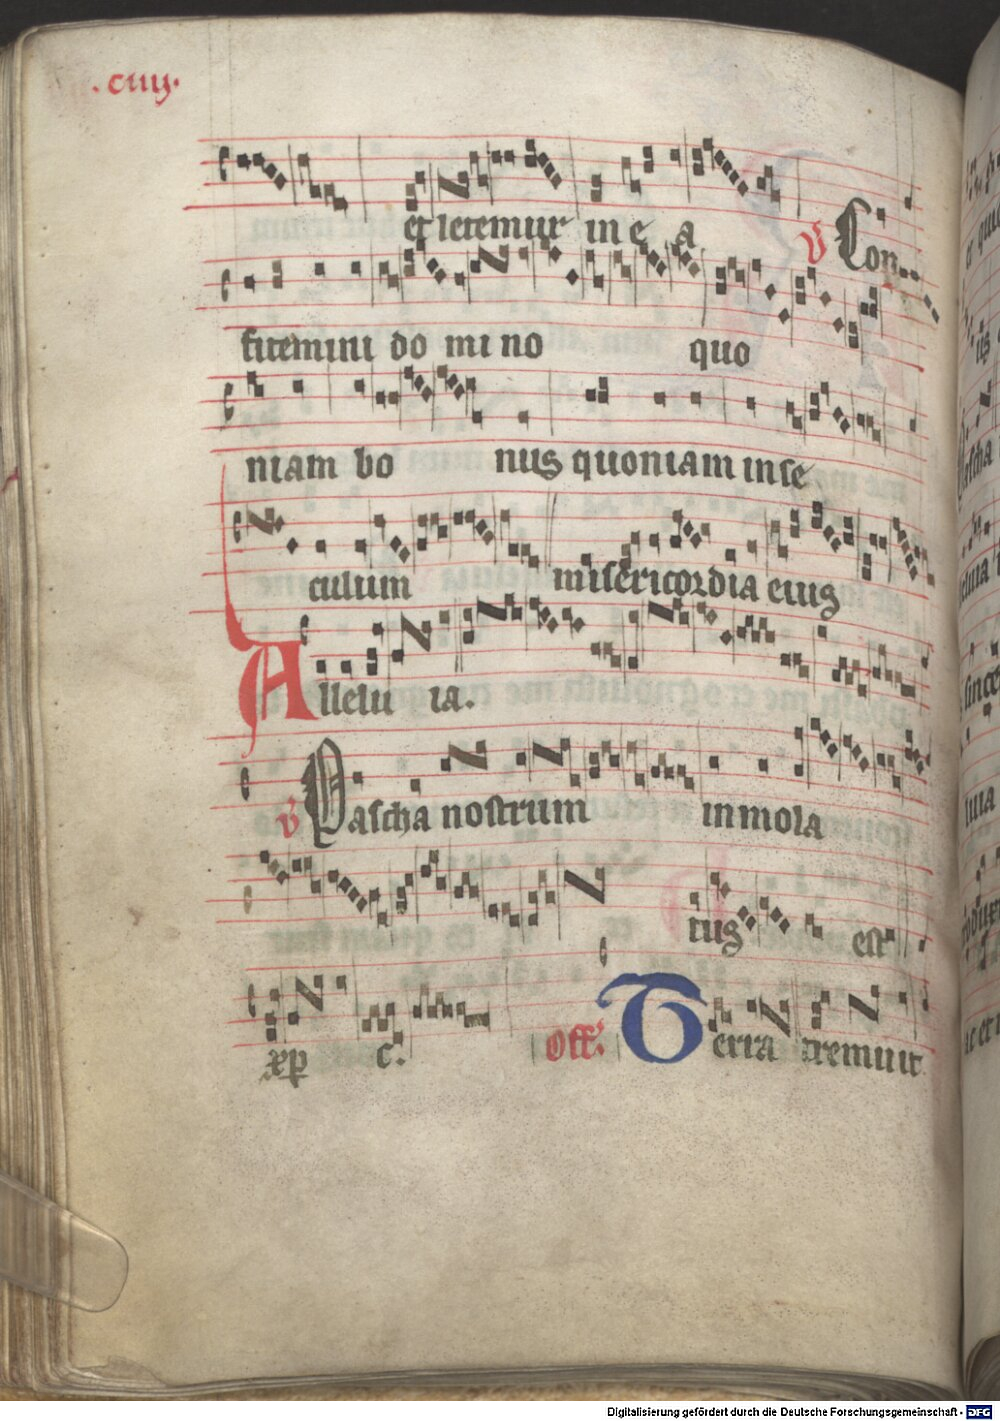 . ciiij.
et letemur in e a ℣ Con
fitemini do mi no quo
niam bo nus quoniam in se
culum misericordia eius
Allelu ia.
℣ Pascha nostrum inmola
tus est
xp c. Off. Terra tremuit
Digitalisierung gefördert durch die Deutsche Forschungsgemeinschaft - DFG